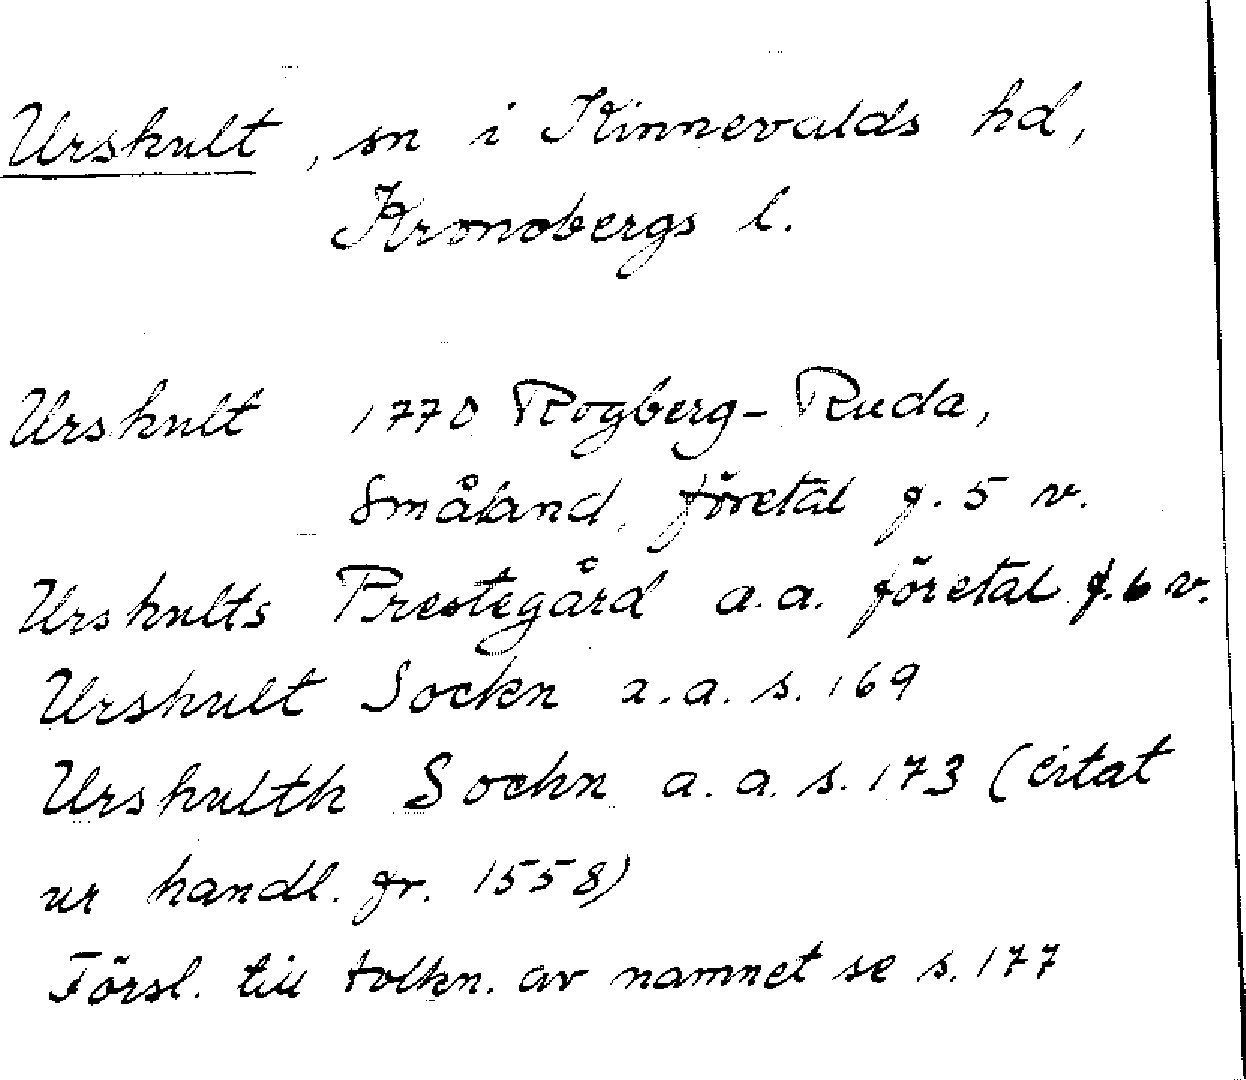 Urshult, sn i Kinnevalds hd,
Kronobergs l.
Urshult 1770 Rogberg-Ruda,
Småland, företal g. 5 v.
Urshults Prestegård a.a. företal g. 6 v.
Urshult Sockn a.a. s. 169
Urshulth Sockn a.a. s. 173 (citat
ur handl. fr. 1558)
Försl. till tolkn. av namnet se s. 177